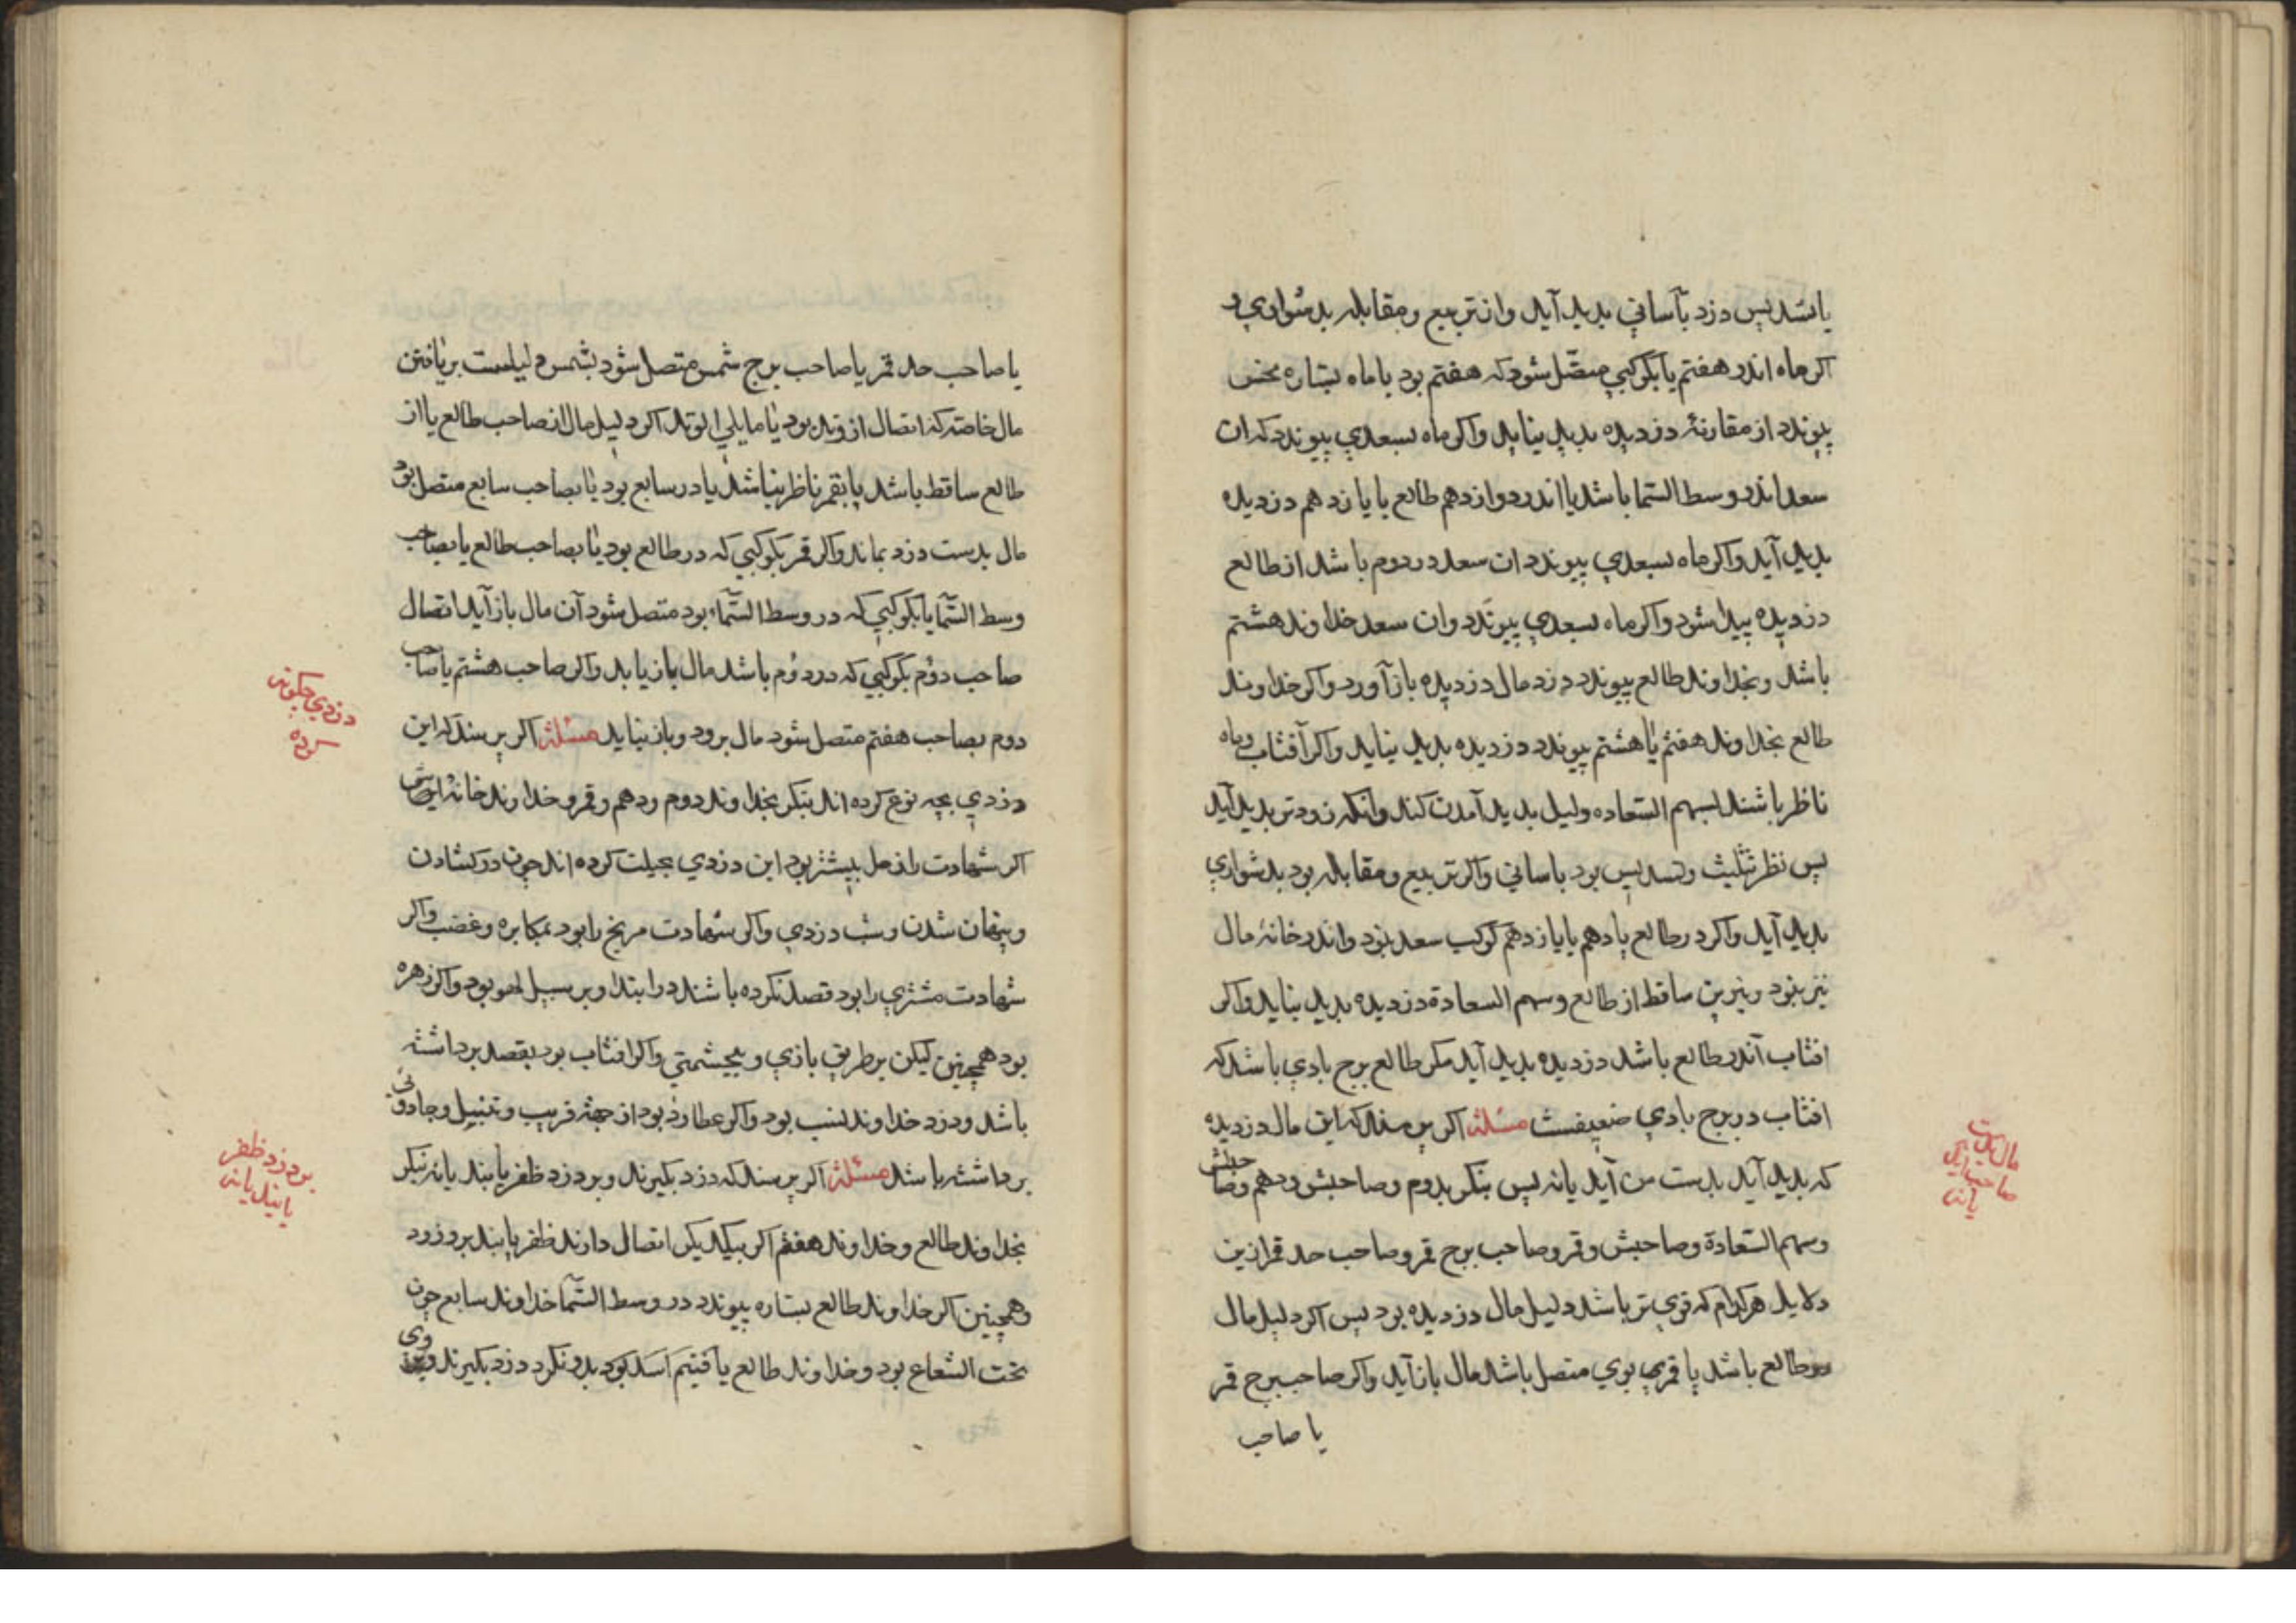 یا تسدیس دزد بآسانی بدید آید وان تربیع ومقابله بدشواری و
اکر ماه اندر هفتم یا بکوکبی متصّل شود که هفتم بود یا ماه بستاره نحس
پیوندد از مقارنهٔ دزدیده بدید نیاید واکر ماه بسعدی پیوندد که ان
سعد اندر وسط السّما باشد یا اندر دوازدهم طالع یا یازدهم دزدیده
بدید آید واکر ماه بسعدی پیوندد ان سعد در دوم باشد از طالع
دزدیده پیدا شود واکر ماه بسعدی پیوندد وان سعد خداوند هشتم
باشد وبخداوند طالع پیوندد دزد مال دزدیده باز آورد واکر خداوند
طالع بخداوند هفتم یا هشتم پیوندد دزدیده بدید نیاید واکر آفتاب وماه
ناظر باشند بسهم السّعاده دلیل بدید آمدن کند وانکه زودتر بدید آید
پس نظر تثلیث وتسدیس بود باسانی واکر تربیع ومقابله بود بدشواری
بدید آید واکر در طالع یا دهم یا یازدهم کوکب سعد نبود واندر خانهٔ مال
نیز نبود ونیرین ساقط از طالع وسهم السعادة دزدیده بدید نیاید واکر
افتاب اندر طالع باشد دزدیده بدید آید مکر طالع برج بادی باشد که
افتاب در برج بادی ضعیفست مسئلة اکر پرسند که این مال دزدیده
که بدید آید بدست من آید یا نه پس بنکر بدوم وصاحبش ودهم وصاحبش
وسهم السّعادة وصاحبش وقمر وصاحب برج قمر وصاحب حد قمر ازین
دلایل هرکدام که قوی تر باشد دلیل مال دزدیده بود پس اکر دلیل مال
در طالع باشد یا قمر بوی متصل باشد مال باز آید واکر صاحب برج قمر
یا صاحب
مال بدست
صاحب آید
یا نه
یا صاحب حد قمر یا صاحب برج شمس متصل شود بشمس دلیلست بر یافتن
مال خاصّه که اتصال از وتد بود یا مایلی الوتد اکر دلیل مال از صاحب طالع یا از
طالع ساقط باشد یا بقمر ناظر نباشد یا در سابع بود یا بصاحب سابع متصل بود
مال بدست دزد بماند واکر قمر بکوکبی که در طالع بود یا بصاحب طالع یا بصاحب
وسط السّما یا بکوکبی که در وسط السّماء بود متصل شود آن مال باز آید اتصال
صاحب دوم بکوکبی که در دوم باشد مال باز یابد واکر صاحب هشتم یا صاحب
دوم بصاحب هفتم متصل شود مال برود وباز نیاید مسئلة اکر پرسند که این
دزدی بچه نوع کرده اند بنکر بخداوند دوم ودهم وقمر وخداوند خانهٔ
اکر شهادت زحل بیشتر بود این دزدی بحیلت کرده اند چون در کشادن
وپنهان شدن وشب دزدی واکر شهادت مریخ را بود بمکابره وغضب واکر
شهادت مشتری را بود قصد نکرده باشند در ابتدا وبر سبیل لهو بود واکر زهره
بود همچنین لیکن بر طریق بازی وبیحشمتی واکر افتاب بود بقصد برداشته
باشد ودزد خداوند نسب بود واکر عطارد بود از جهة فریب وتنبیل وجادوئی
برداشته باشد مسئلة اکر پرسند که دزد بکیرند وبر دزد ظفر یابند یا نه بنکر
بخداوند طالع وخداوند هفتم اکر بیکدیکر اتصال دارند ظفر یابند بر دزد
وهمچنین اکر خداوند طالع بستاره پیوندد در وسط السّما خداوند سابع چون
تحت الشعاع بود وخداوند طالع یا بدو نکرد دزد بکیرند
دزدی چکونه
کرده
بر دزد ظفر
یابند یا نه